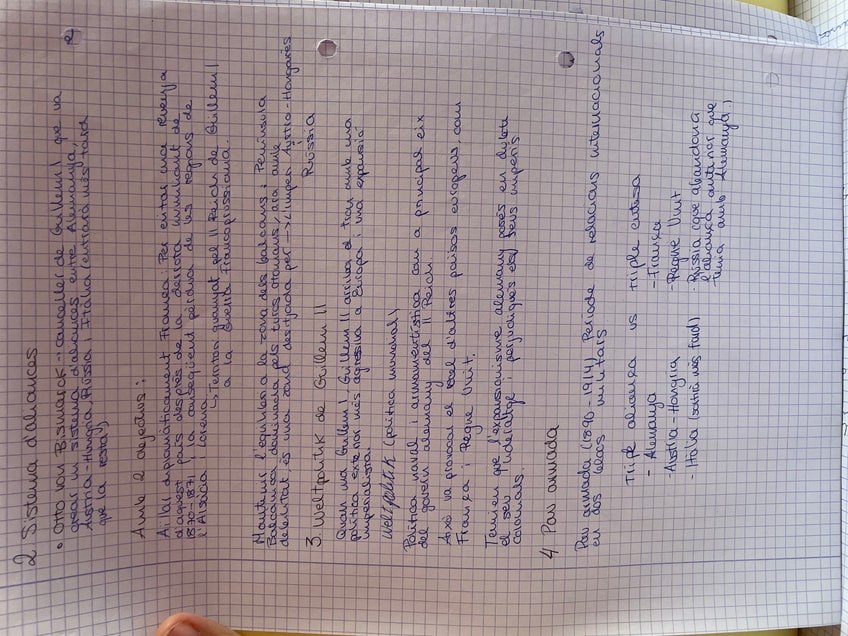 2
2 Sistema d'aliances
• Otto von Bismarck → canceller de Guillem I que va
crear un sistema d'aliances entre Alemanya,
Àustria-Hongria Rússia i Itàlia (entrarà més tard
que la resta)
Amb 2 objectius:
Aïllar diplomàticament França: Per evitar una revenja
d'aquest país després de la derrota humiliant de
1870-1871 i la consegüent pèrdua de les regions de
l'Alsàcia i Lorena
↳ Territori guanyat pel II Reich de Guillem I
a la Guerra Francoprussiana.
Mantenir l'equilibri a la zona dels Balcans: Península
Balcànica dominada pels turcs otomans, ara amb
debilitat és una zona desitjada per → L'Imperi Àustro-Hongarès
Rússia
3. Weltpolitik de Guillem II
Quan mor Guillem I, Guillem II arriba al tron amb una
política exterior més agressiva a Europa i una expansió
imperialista.
Weltpolitik (política mundial)
Política naval i armamentística com a principal eix
del govern alemany del II Reich.
Això va provocar el recel d'altres països europeus com
França i Regne Unit.
Temien que l'expansionisme alemany posés en dubte
el seu lideratge i perjudiqués els seus imperis
colonials.
4. Pau armada
Pau armada (1890-1914) Període de relacions internacionals
en dos blocs militars
Triple aliança vs Triple entesa
- Alemanya - França
- Àustria-Hongria - Regne Unit
- Itàlia (entrà més tard) - Rússia (que abandonà
l'aliança anterior que
tenia amb Alemanya)